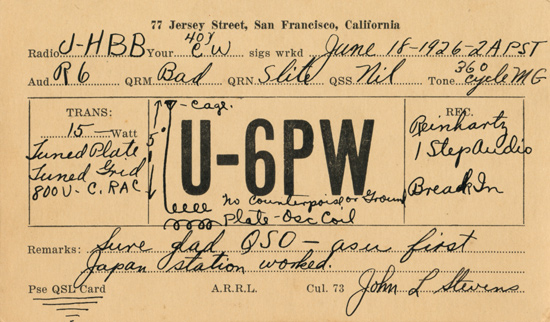 77 Jersey Street, San Francisco, California
Radio U-HBB Your 40Y CW sigs wrkd June 18-1926-2A PST
Aud R6 QRM Bad QRN Slite QSS Nil Tone 360 cycle MG
TRANS:
15 Watt
Tuned Plate
Tuned Grid
800 U-C. RAC
cage.
5
U-6PW
no counterpoise or Ground
Plate-Osc Coil
REC.
Reinhartz
1 Step Audio
Break In
Remarks: Sure glad QSO - as u first
Japan station worked.
Pse QSL Card A.R.R.L. Cul. 73 John L Stevens